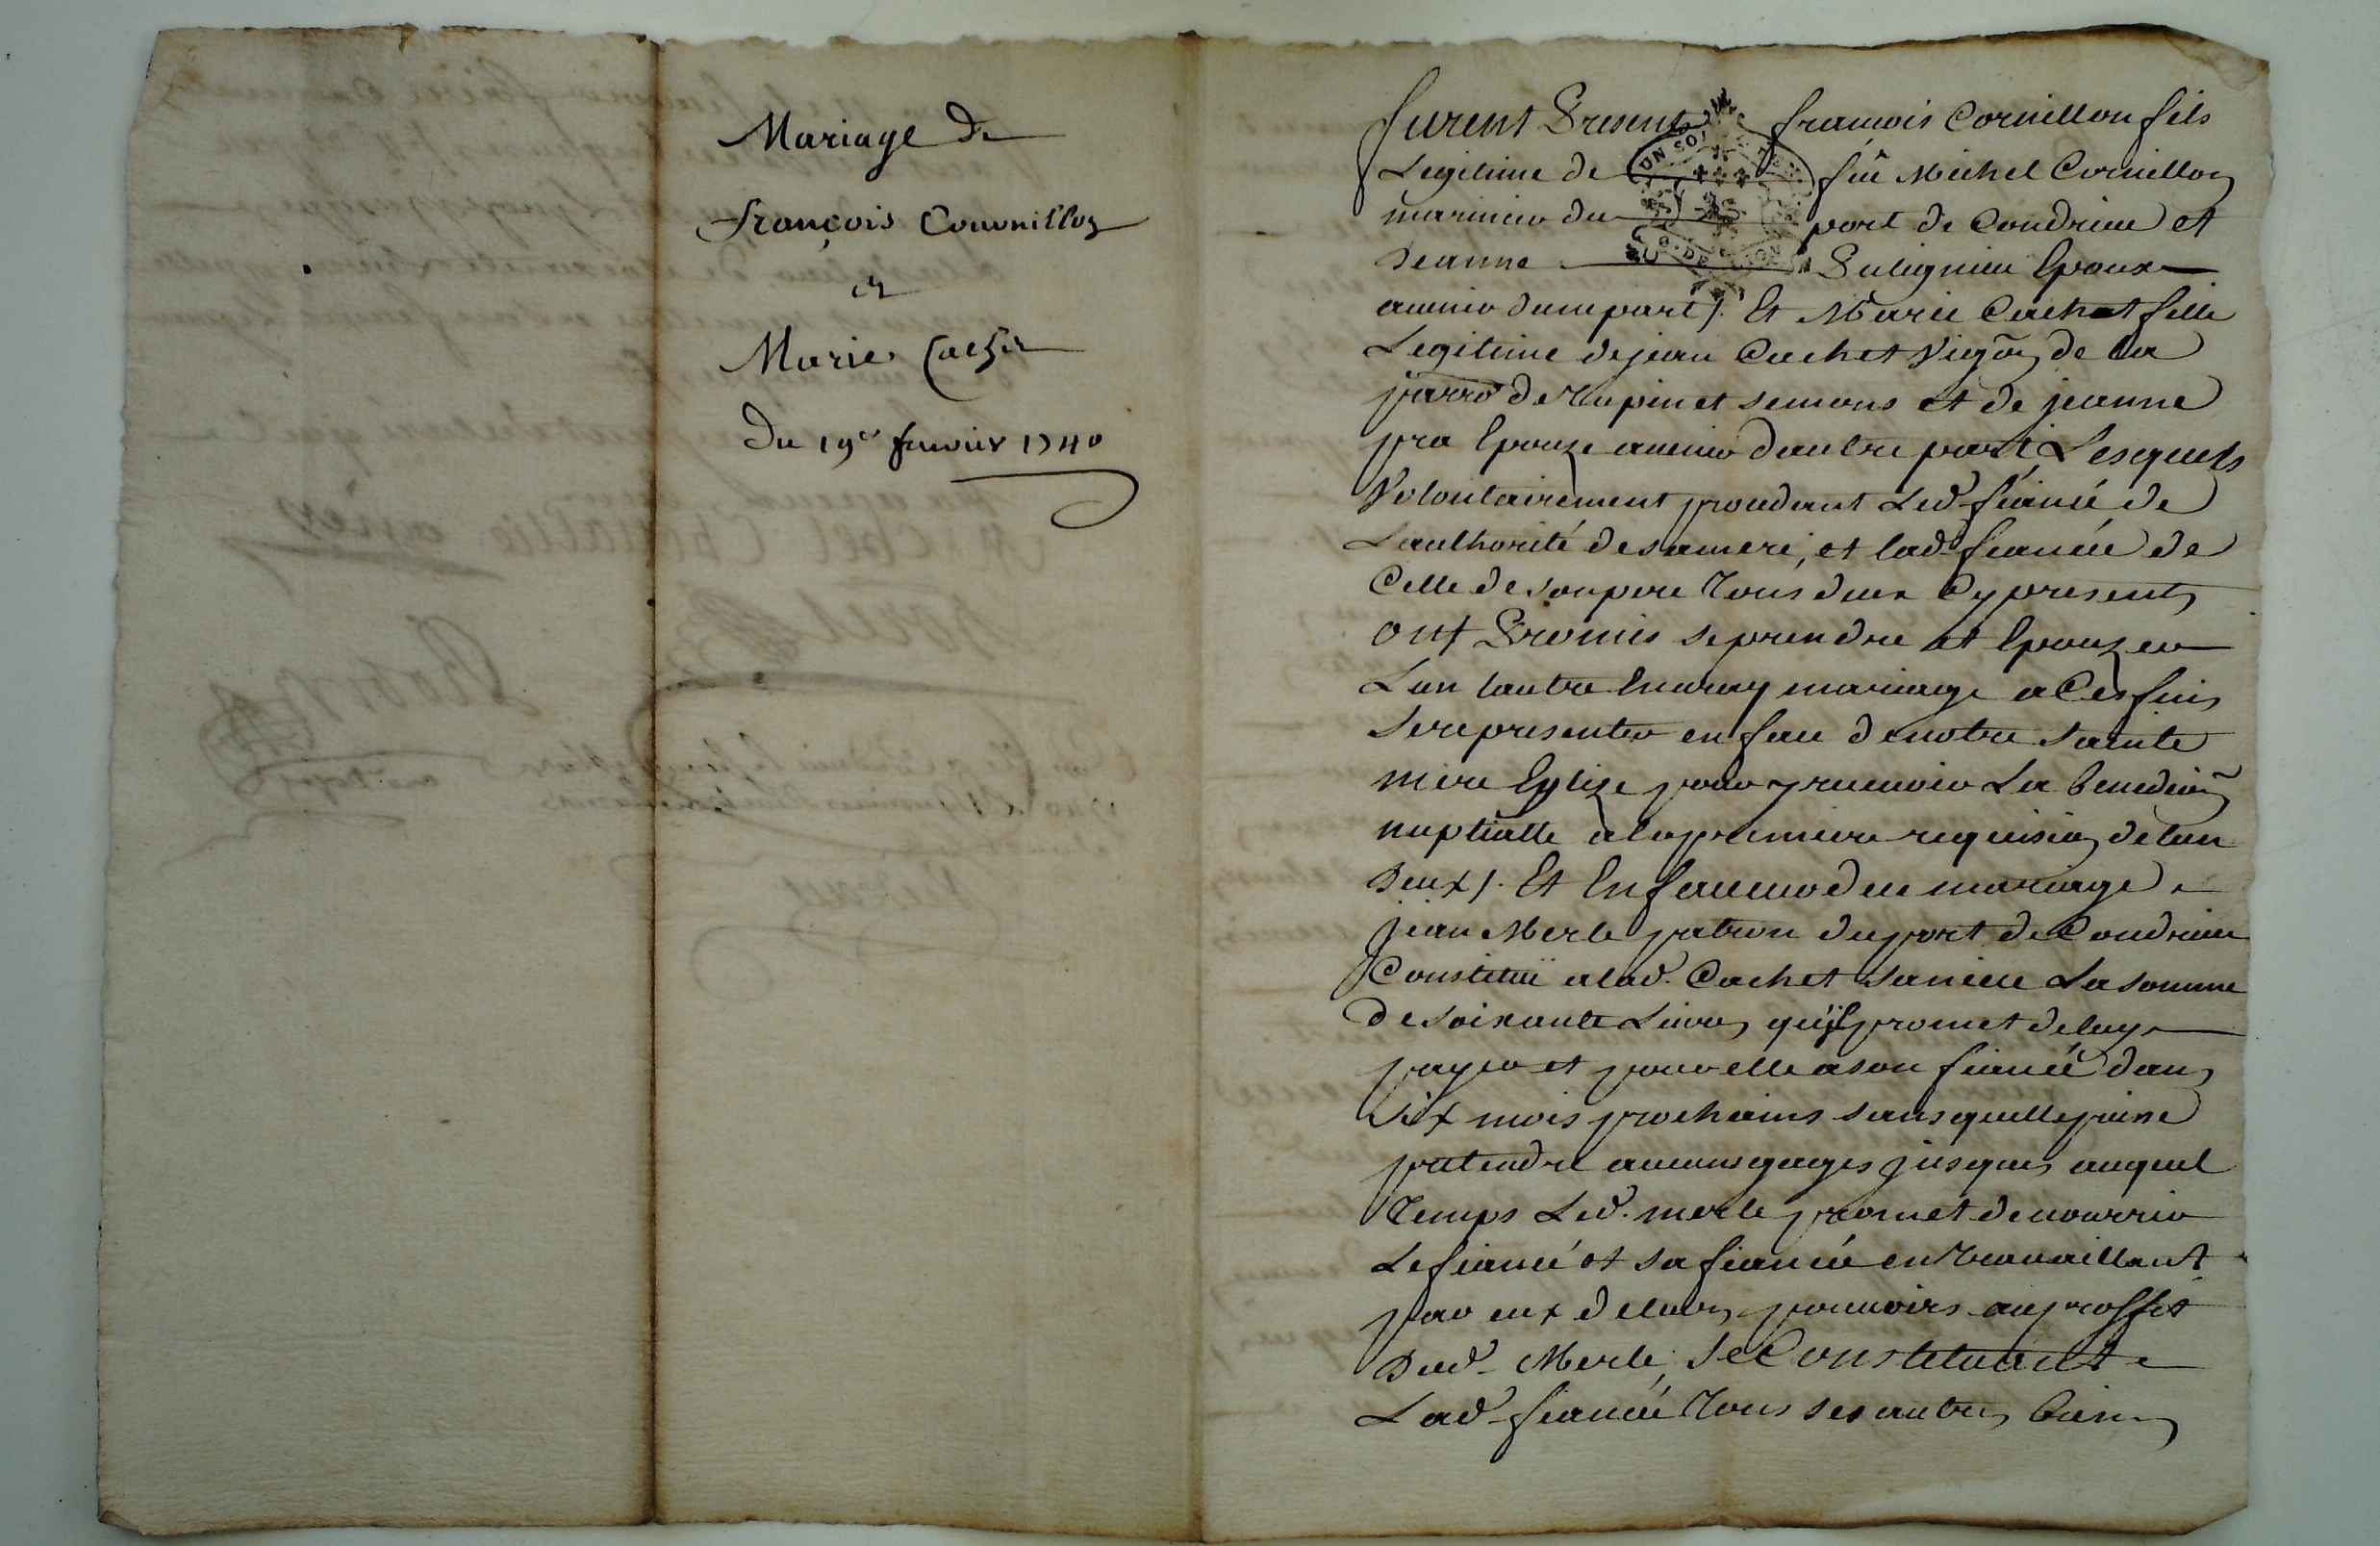 Mariage de
françois Cournillon
et
Marie Cachet
du 19e feuvrier 1740
furent Presents françois Cornillon fils
Legitime de feû Michel Cornillon
marinier du port de Condrieu et
Jeanne Pulignieu Epoux
a une part /. Et Marie Cachet fille
Legitime de jean Cachet Vigñ de la
parro de Tupin et semons et de jeanne
pra Epouze d'autre part, Lesquels
Volontairement proceddant Led fiancé de
L'authorité de sa mere, et lad fiancée de
Celle de son pere Tous deux Cy presents
ont Promis se prendre et Epouzer
L'un l'autre En vray mariage a Ces fins
Se representer en face de notre Sainte
mere Eglize pour y recevoir La benedion
nuptialle a la premiere requision de l'un
Deux /. Et En faveur du mariage
jean Merle patron du port de Condrieu
Constitüe a lad. Cachet sa niece La somme
de soixante Livres qu'il promet de luy
payer et pour elle a son fiancé dans
Six mois prochains sans quelle puisse
pretendre aucuns gages jusques auquel
Temps Led. merle promet de nourrir
Le fiancé et sa fiancée en travaillant
par eux de leurs pouvoirs au proffit
Dud. Merle, se Constituant
Lad fiancée Tous ses autres biens
UN SOL
DE LION